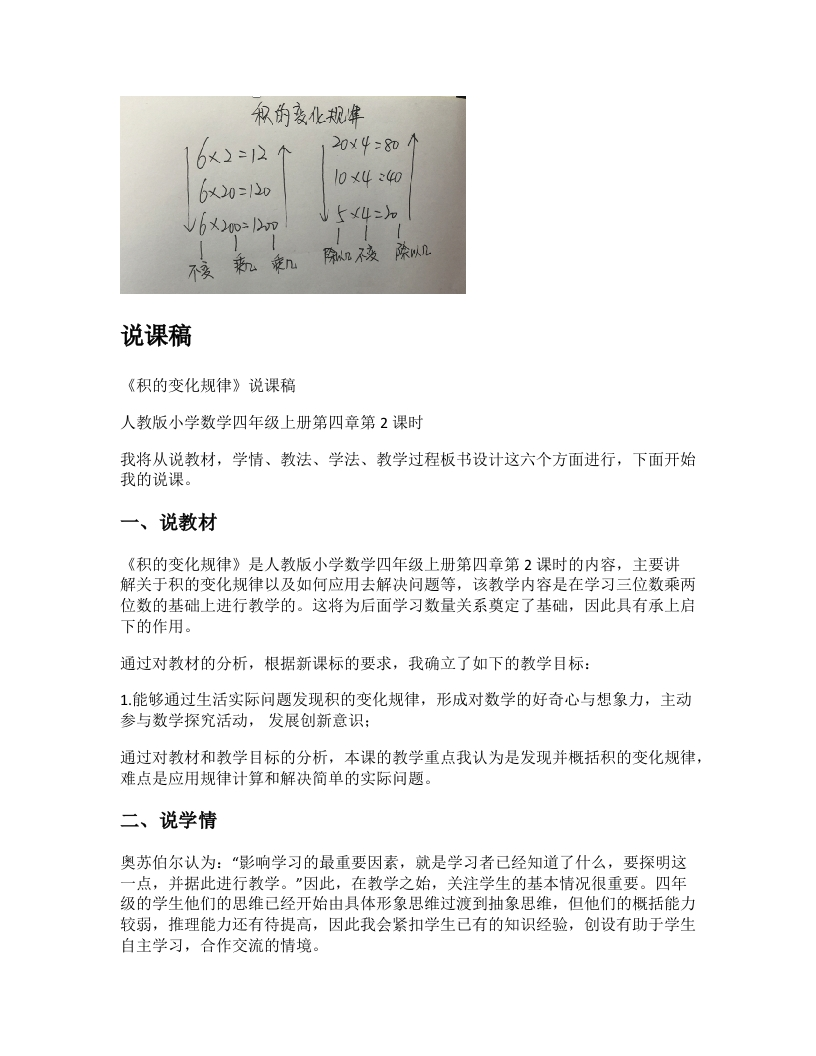 积的变化规律
6×2=12
6×20=120
6×200=1200
不变 乘几 乘几
20×4=80
10×4=40
5×4=20
除以几 不变 除以几
说课稿
《积的变化规律》说课稿
人教版小学数学四年级上册第四章第 2 课时
我将从说教材，学情、教法、学法、教学过程板书设计这六个方面进行，下面开始
我的说课。
一、说教材
《积的变化规律》是人教版小学数学四年级上册第四章第 2 课时的内容，主要讲
解关于积的变化规律以及如何应用去解决问题等，该教学内容是在学习三位数乘两
位数的基础上进行教学的。这将为后面学习数量关系奠定了基础，因此具有承上启
下的作用。
通过对教材的分析，根据新课标的要求，我确立了如下的教学目标：
1.能够通过生活实际问题发现积的变化规律，形成对数学的好奇心与想象力，主动
参与数学探究活动， 发展创新意识；
通过对教材和教学目标的分析，本课的教学重点我认为是发现并概括积的变化规律，
难点是应用规律计算和解决简单的实际问题。
二、说学情
奥苏伯尔认为：“影响学习的最重要因素，就是学习者已经知道了什么，要探明这
一点，并据此进行教学。”因此，在教学之始，关注学生的基本情况很重要。四年
级的学生他们的思维已经开始由具体形象思维过渡到抽象思维，但他们的概括能力
较弱，推理能力还有待提高，因此我会紧扣学生已有的知识经验，创设有助于学生
自主学习，合作交流的情境。